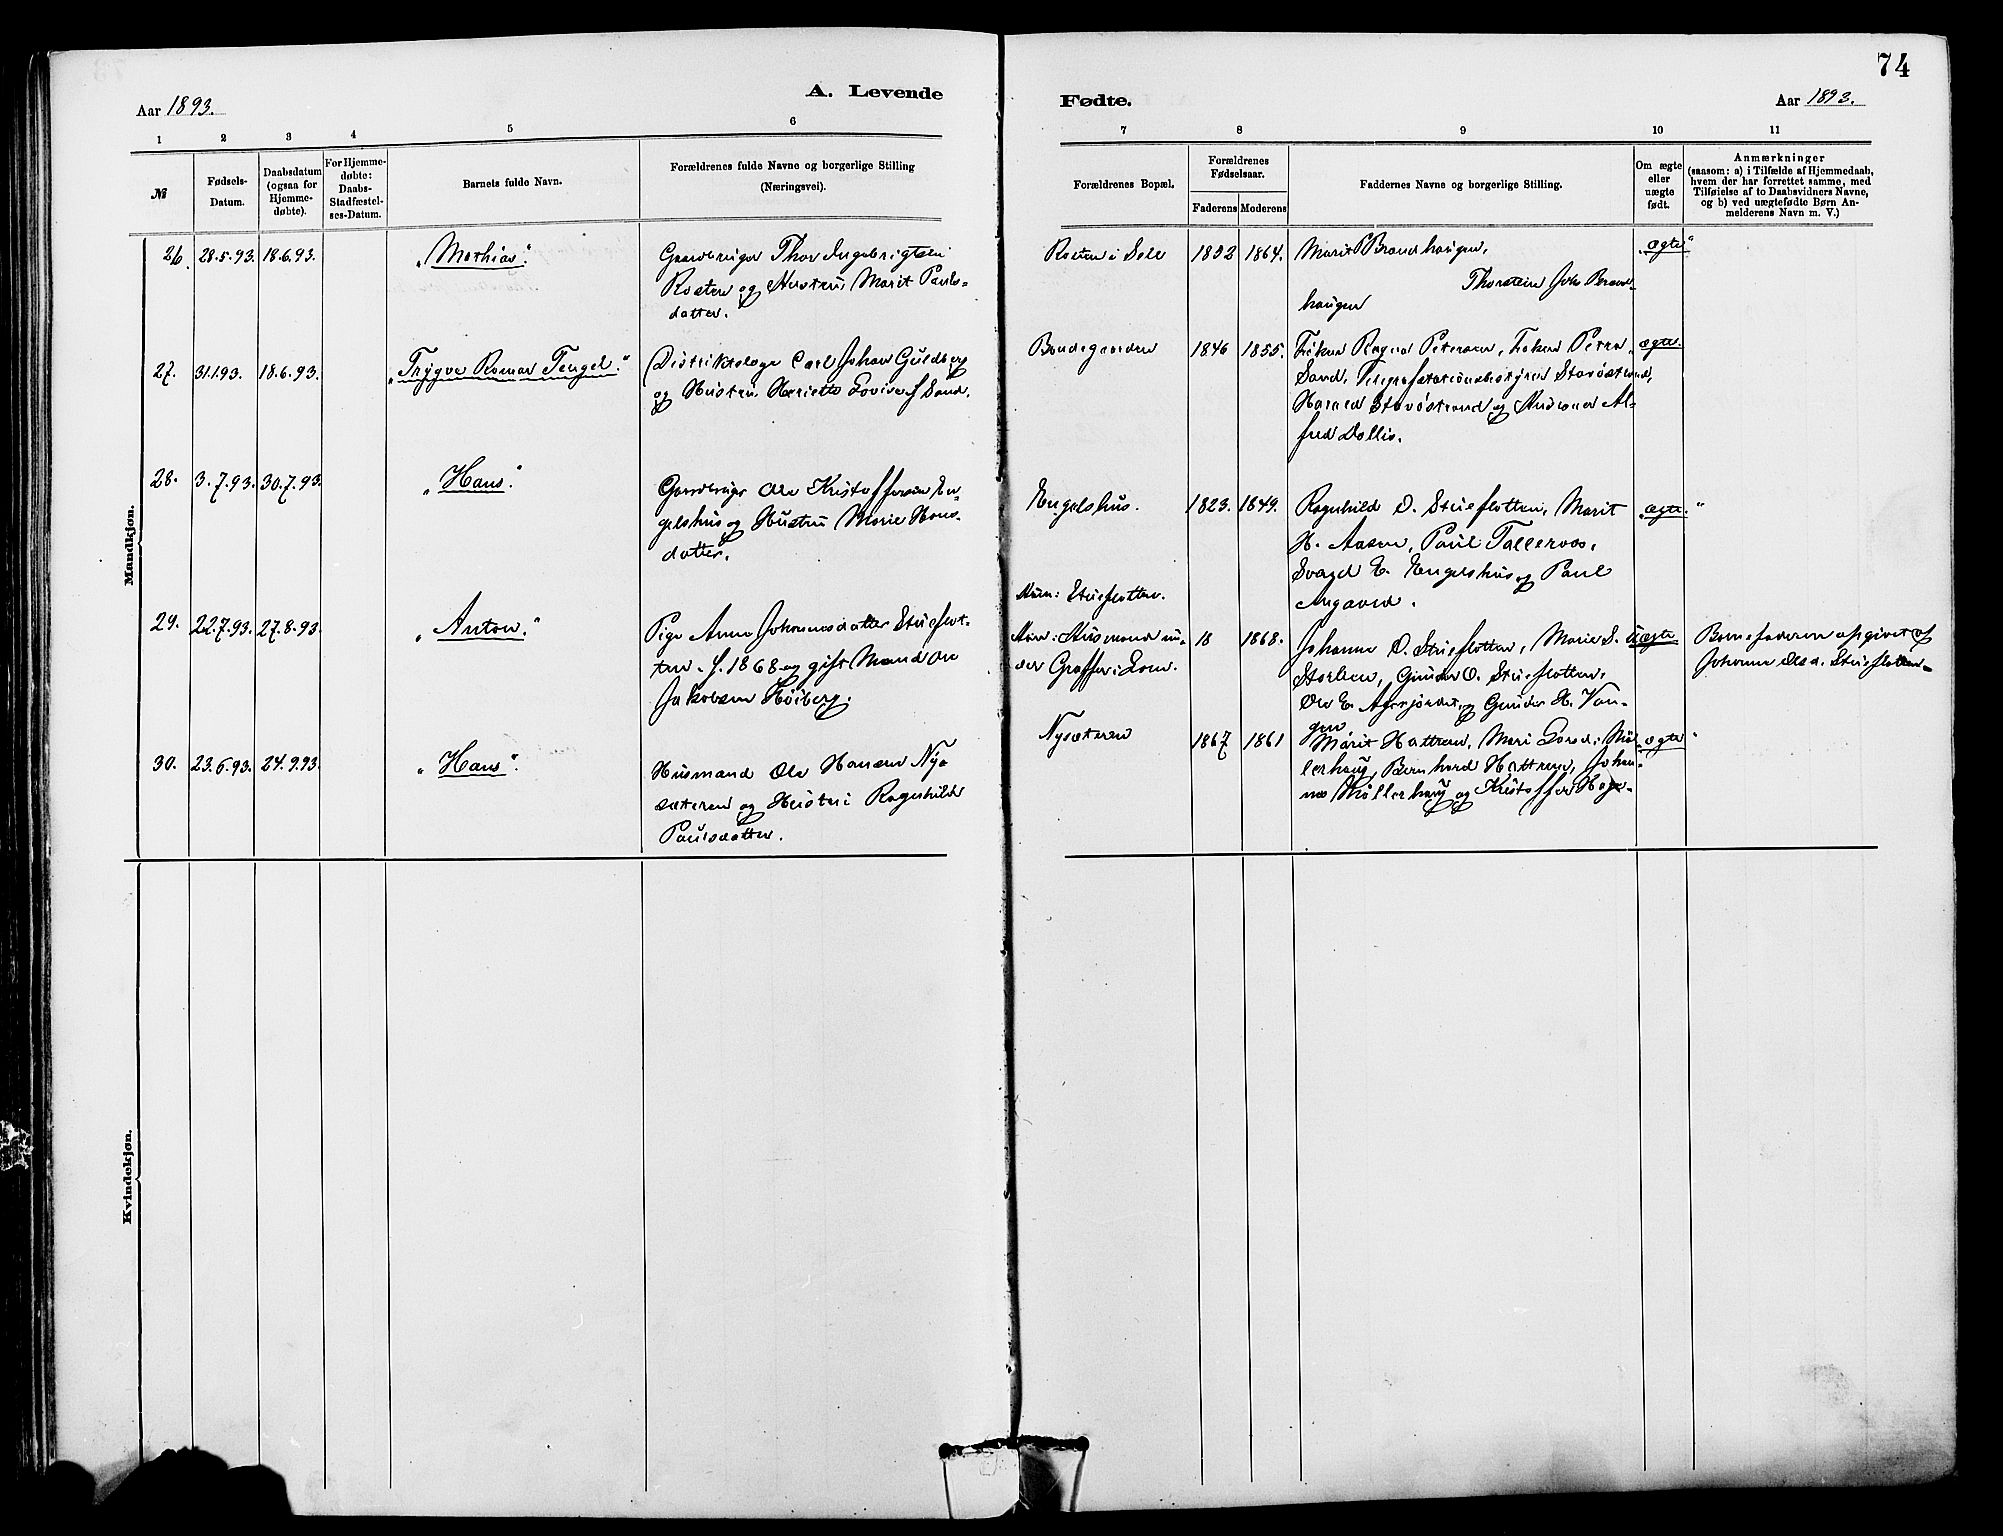 74
Aar 1893.
A. Levende
Fødte.
Aar 1893.
1 2 3 4 5 6 7 8 9 10 11
№
Fødsels-
Datum.
Daabsdatum
(ogsaa for
Hjemme-
døbte).
For Hjemme-
døbte:
Daabs-
Stadfæstel-
ses-Datum.
Barnets fulde Navn.
Forældrenes fulde Navne og borgerlige Stilling
(Næringsvei).
Forældrenes Bopæl.
Forældrenes
Fødselsaar.
Faderens Moderens
Faddernes Navne og borgerlige Stilling.
Om ægte
eller
uægte
født.
Anmærkninger
(saasom: a) i Tilfælde af Hjemmedaab,
hvem der har forrettet samme, med
Tilføielse af to Daabsvidners Navne,
og b) ved uægtefødte Børn An-
melderens Navn m. V.)
Mandkjøn.
26. 28.5.93. 18.6.93. „Mathias“.
Gaardbruger Thor Ingebrigtsen
Rosten og Hustru Marit Pauls-
datter.
Rosten i Sels 1832 1864.
Marit P Brandhaugen,
Thorstein Johs Brand-
haugen
„ægte“
27. 31.1.93. 18.6.93. „Trygve Romar Tengel.“
Distriktslæge Carl Johan Guldberg
og Hustru Hariette Lovise f Sand.
Bondegaarden 1846 1855.
Frøken Ragna Petersen, Frøken Petra
Sand, Telegrafstationsbestyrer
Harald og
fred Dollis.
ægte.
28. 3.7.93. 30.7.93. „Hans“.
Gaardbruger Ole Kristoffersen En-
gelshus og Hustru Marie Hans-
datter.
Engelshus. 1823. 1849.
Ragnhild O. Stueflotten, Marit
H. Aasen, Paul Talleraas,
E. Engelshus og Paul
Angaard.
„ægte.“
29. 22.7.93. 27.8.93. „Anton.“
Pige Anne Johannesdatter Stueflot-
ten f. 1868 og gift Mand Ole
Jakobsen Høiberg.
Mod: Stueflotten.
Husmand un-
der Graffer i Lom.
18 1868.
Johanne O. Stueflotten, Marie S.
Storlien, Gunder O. Stueflotten,
Ole E. og Gunder H. Van-
gen
Uægte
Barnefaderen opgivet af
Johanne Olsd. Stueflotten
30. 23.6.93. 24.9.93. „Hans“.
Husmand Ole Hansen Nys-
æteren og Hustru Ragnhild
Paulsdatter.
Nysæteren 1867 1861
Marit Hattrem, Mari Larsd: Møl-
lerhaug, Bernhard Hattrem, Johan-
nes Møllerhaug og Kristoffer
„ægte“
Kvindekjøn.